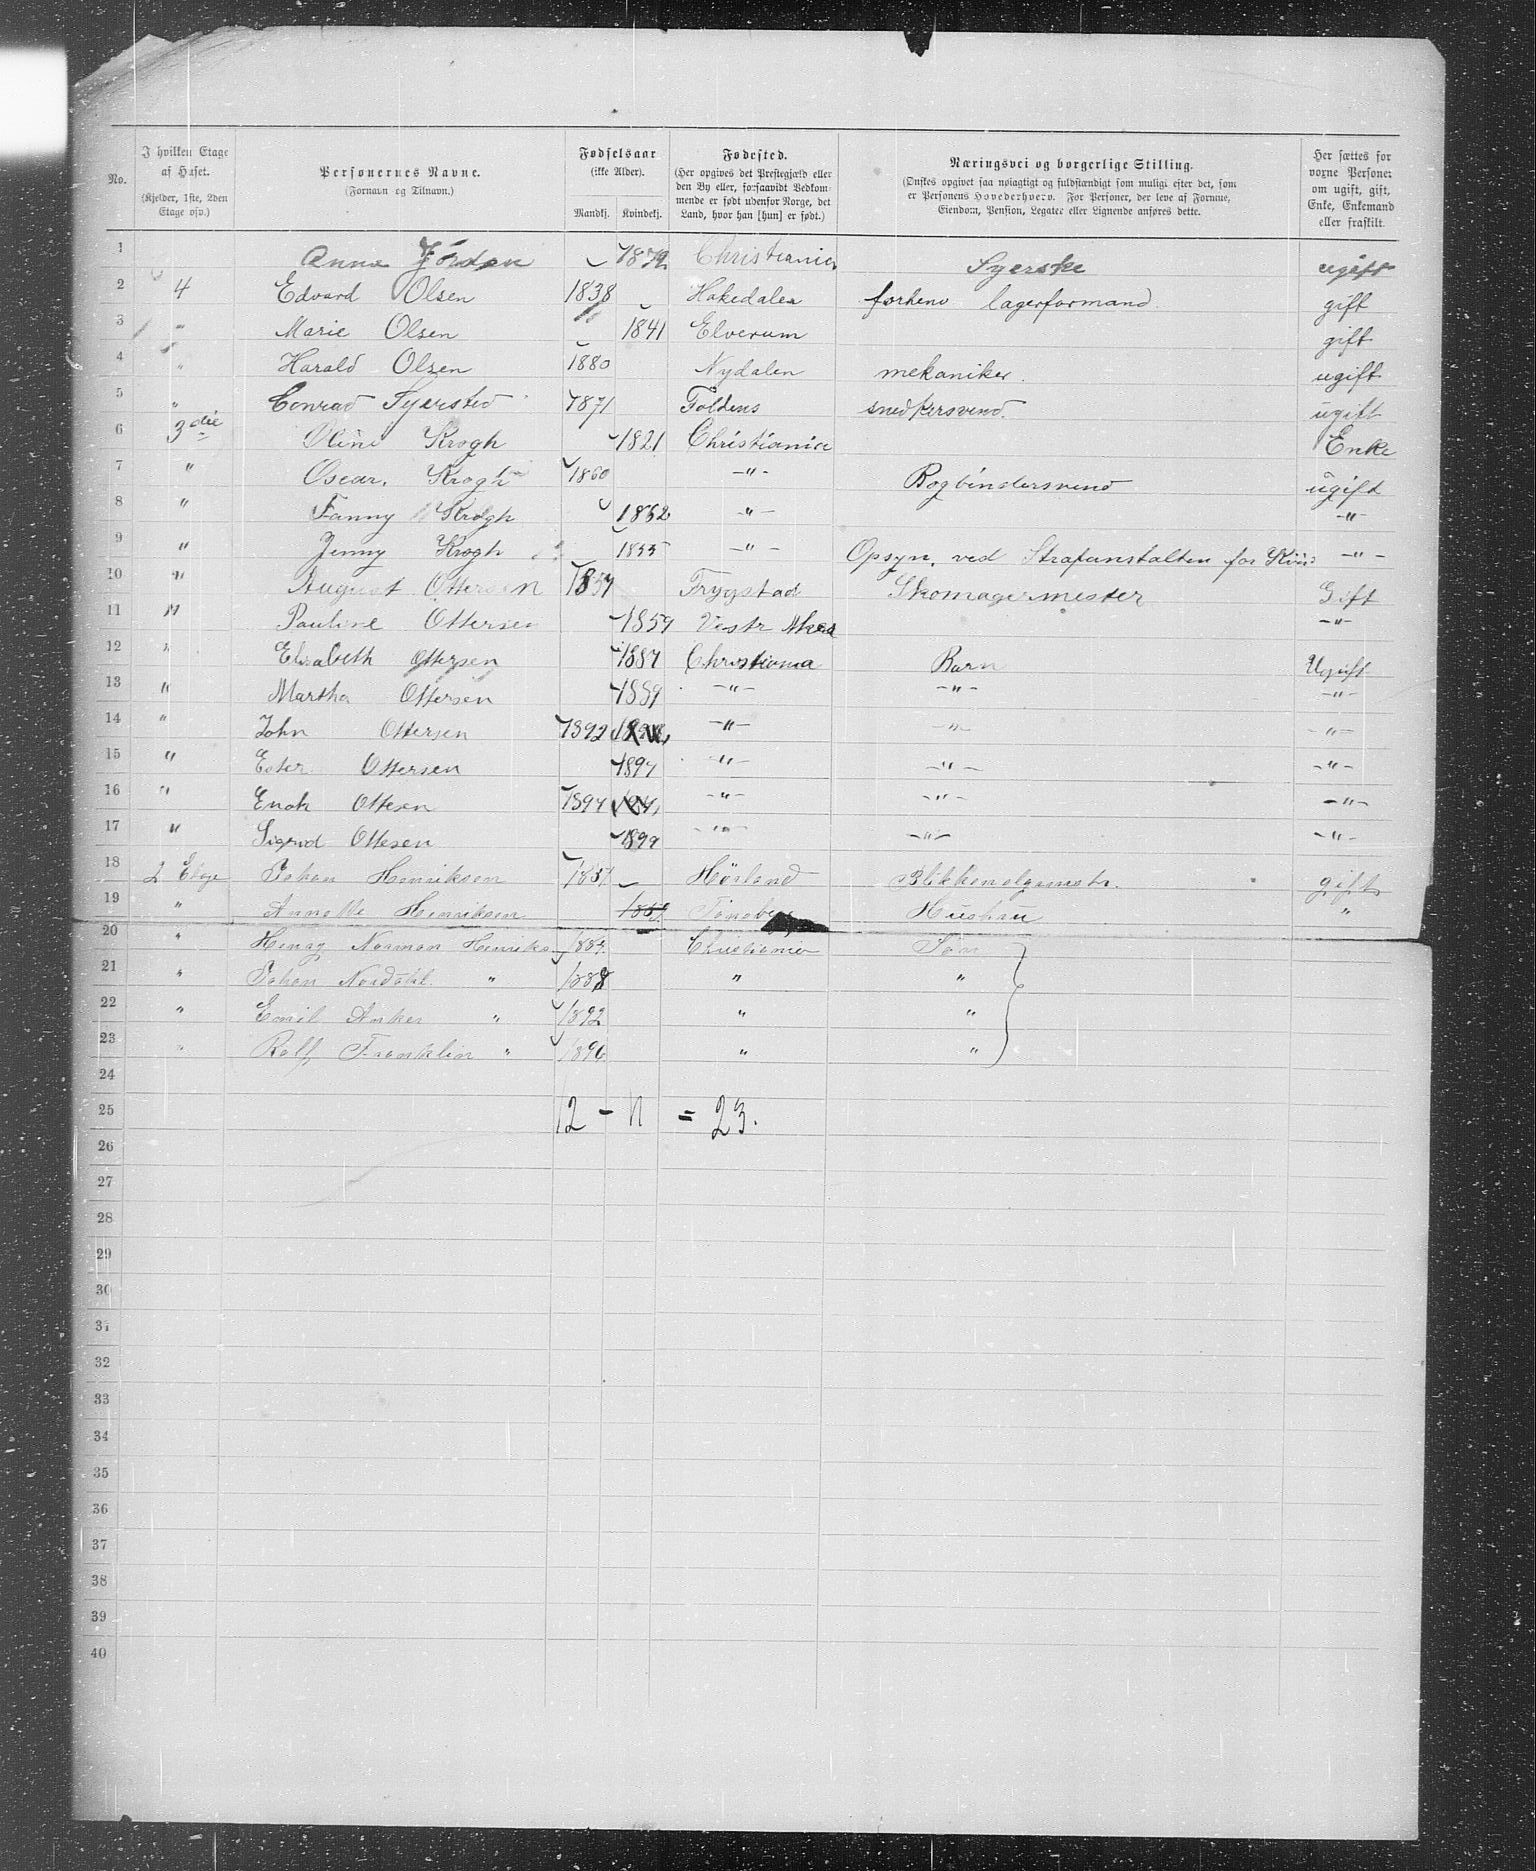 No.
I hvilken Etage af Huset. (Kjelder, 1ste, 2den Etage osv.)
Personernes Navne. (Fornavn og Tilnavn.)
Fødselsaar (ikke Alder). Mandkj. Kvindekj.
Fødested. (Her opgives det Prestegjæld eller den By eller, forsaavidt Vedkommende er født udenfor Norge, det Land, hvor han [hun] er født.)
Næringsvei og borgerlige Stilling. (Ønskes opgivet saa nøiagtigt og fuldstændigt som muligt efter det, som er Personens Hovederhverv. For Personer, der leve af Formue, Eiendom, Pension, Legater eller Lignende anføres dette.
Her sættes for voxne Personer om ugift, gift, Enke, Enkemand eller fraskilt.
1 Anna 1879 Christiania Syerske ugift
2 4 Edvard Olsen 1838 Hakedalen forhenv lagerformand gift
3 " Marie Olsen 1841 Elverum gift
4 " Harald Olsen 1880 Nydalen mekaniker. ugift
5 " Conrad 1871 Foldens snedkersvend. ugift
6 3die Oline Krogh 1821 Christiania Enke
7 " Oscar. Krogh 1860 -"- Bogbindersvend ugift
8 " Fanny Krogh 1862 -"- -"-
9 " Jenny Krogh 1855 -"- Opsyn. ved Strafanstalten for -"-
10 " August Ottersen 1857 Trygstad Skomagermester Gift
11 " Pauline Ottersen 1859 Vestr Aker -"-
12 " Elisabeth Ottersen 1887 Christiania Barn Ugift
13 " Martha Ottersen 1889 -"- -"- -"-
14 " John Ottersen 1892 -"- -"- -"-
15 " Ester Ottersen 1894 -"- -"- -"-
16 " Enok Ottesen 1897 -"- -"- -"-
17 " Sigrid Ottesen 1899 -"- -"- -"-
18 2 Etage Johan Henriksen 1857 gift
19 " Annette Henriksen Tønsberg Hustru "
20 " Henry Norman Henriks 1884 Christiania Søn
21 " Johan Nordahl " 1888 " "
22 " Emil Anker " 1892 " "
23 " Rolf Franklin " 1896 " "
24
25 12 - 11 = 23.
26
27
28
29
30
31
32
33
34
35
36
37
38
39
40